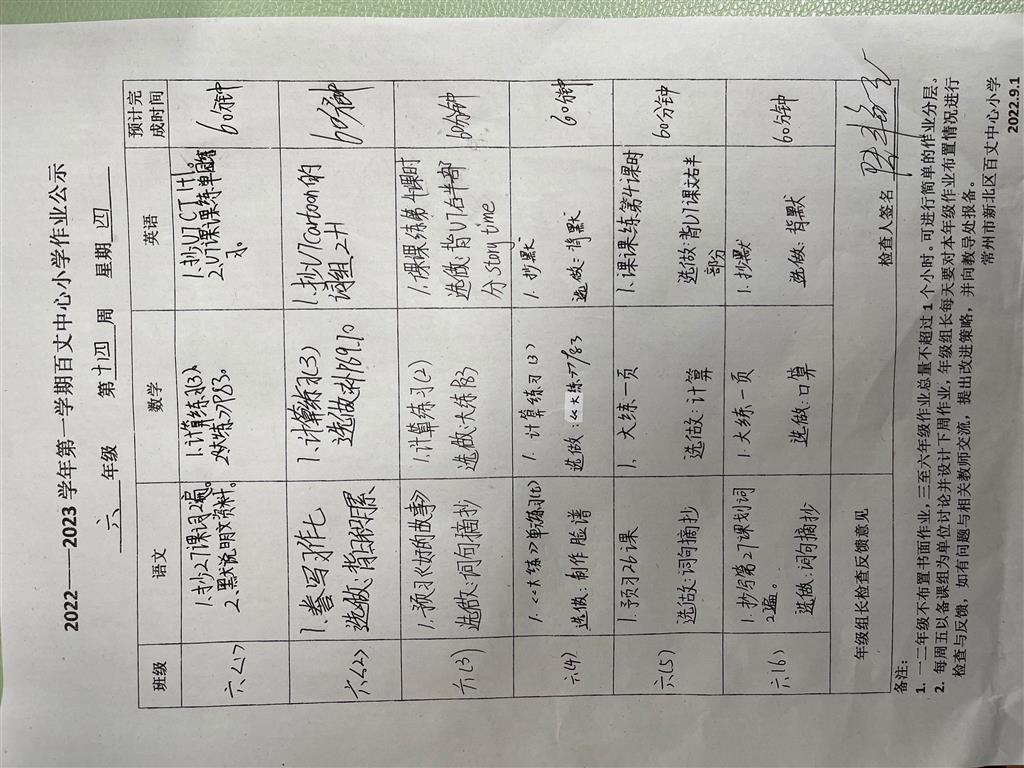 2022——2023 学年第一学期百丈中心小学作业公示
六 年级 第 十四 周 星期 四
班级 语文 数学 英语 预计完成时间
六(1)
1.抄27课词2遍。
2.默说明文资料。
1.计算练习(3)
2.大练习P83。
1.抄U7 CT 1+1。
2.U7课课练单
60分钟
六(2)
1.誊写习作七
选做:背日积月累
1.计算练习(3)
选做:大补P69.70
1.抄U7 cartoon的
词组 2+1
60分钟
六(3)
1.预习《好的故事》
选做:词句摘抄
1.计算练习(2)
选做:大练P83
1.课课练第4课时
选做:背U7右半部
分 Story time
60分钟
六(4)
1.《大练》单元练习(6)
选做:制作脸谱
1.计算练习(3)
选做:《大练》P83
1.抄默
选做:背默
60分钟
六(5)
1.预习26课
选做:词句摘抄
1.大练一页
选做:计算
1.课课练第4课时
选做:背U7课文右半
部分
60分钟
六(6)
1.抄写第27课划词
2遍。
选做:词句摘抄
1.大练一页
选做:口算
1.抄默
选做:背默
60分钟
年级组长检查反馈意见 检查人签名
备注:
1. 一二年级不布置书面作业,三至六年级作业总量不超过 1 个小时。可进行简单的作业分层。
2. 每周五以备课组为单位讨论并设计下周作业,年级组长每天要对本年级作业布置情况进行
检查与反馈,如有问题与相关教师交流,提出改进策略,并向教导处报备。
常州市新北区百丈中心小学
2022.9.1